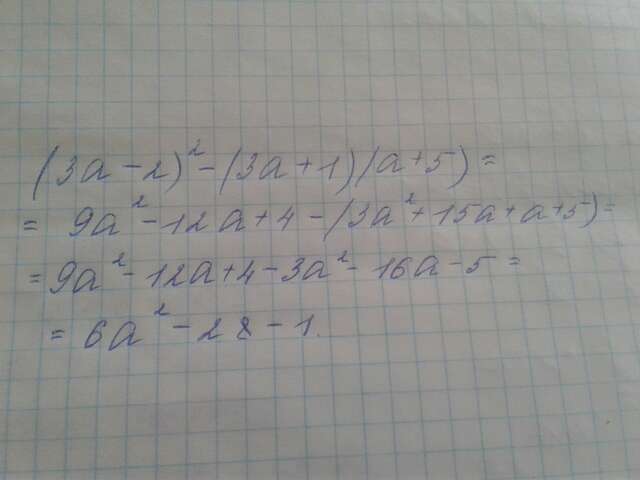 (3a-2)²-(3a+1)(a+5)=
= 9a²-12a+4-(3a²+15a+a+5)=
=9a²-12a+4-3a²-16a-5=
= 6a²-28-1.